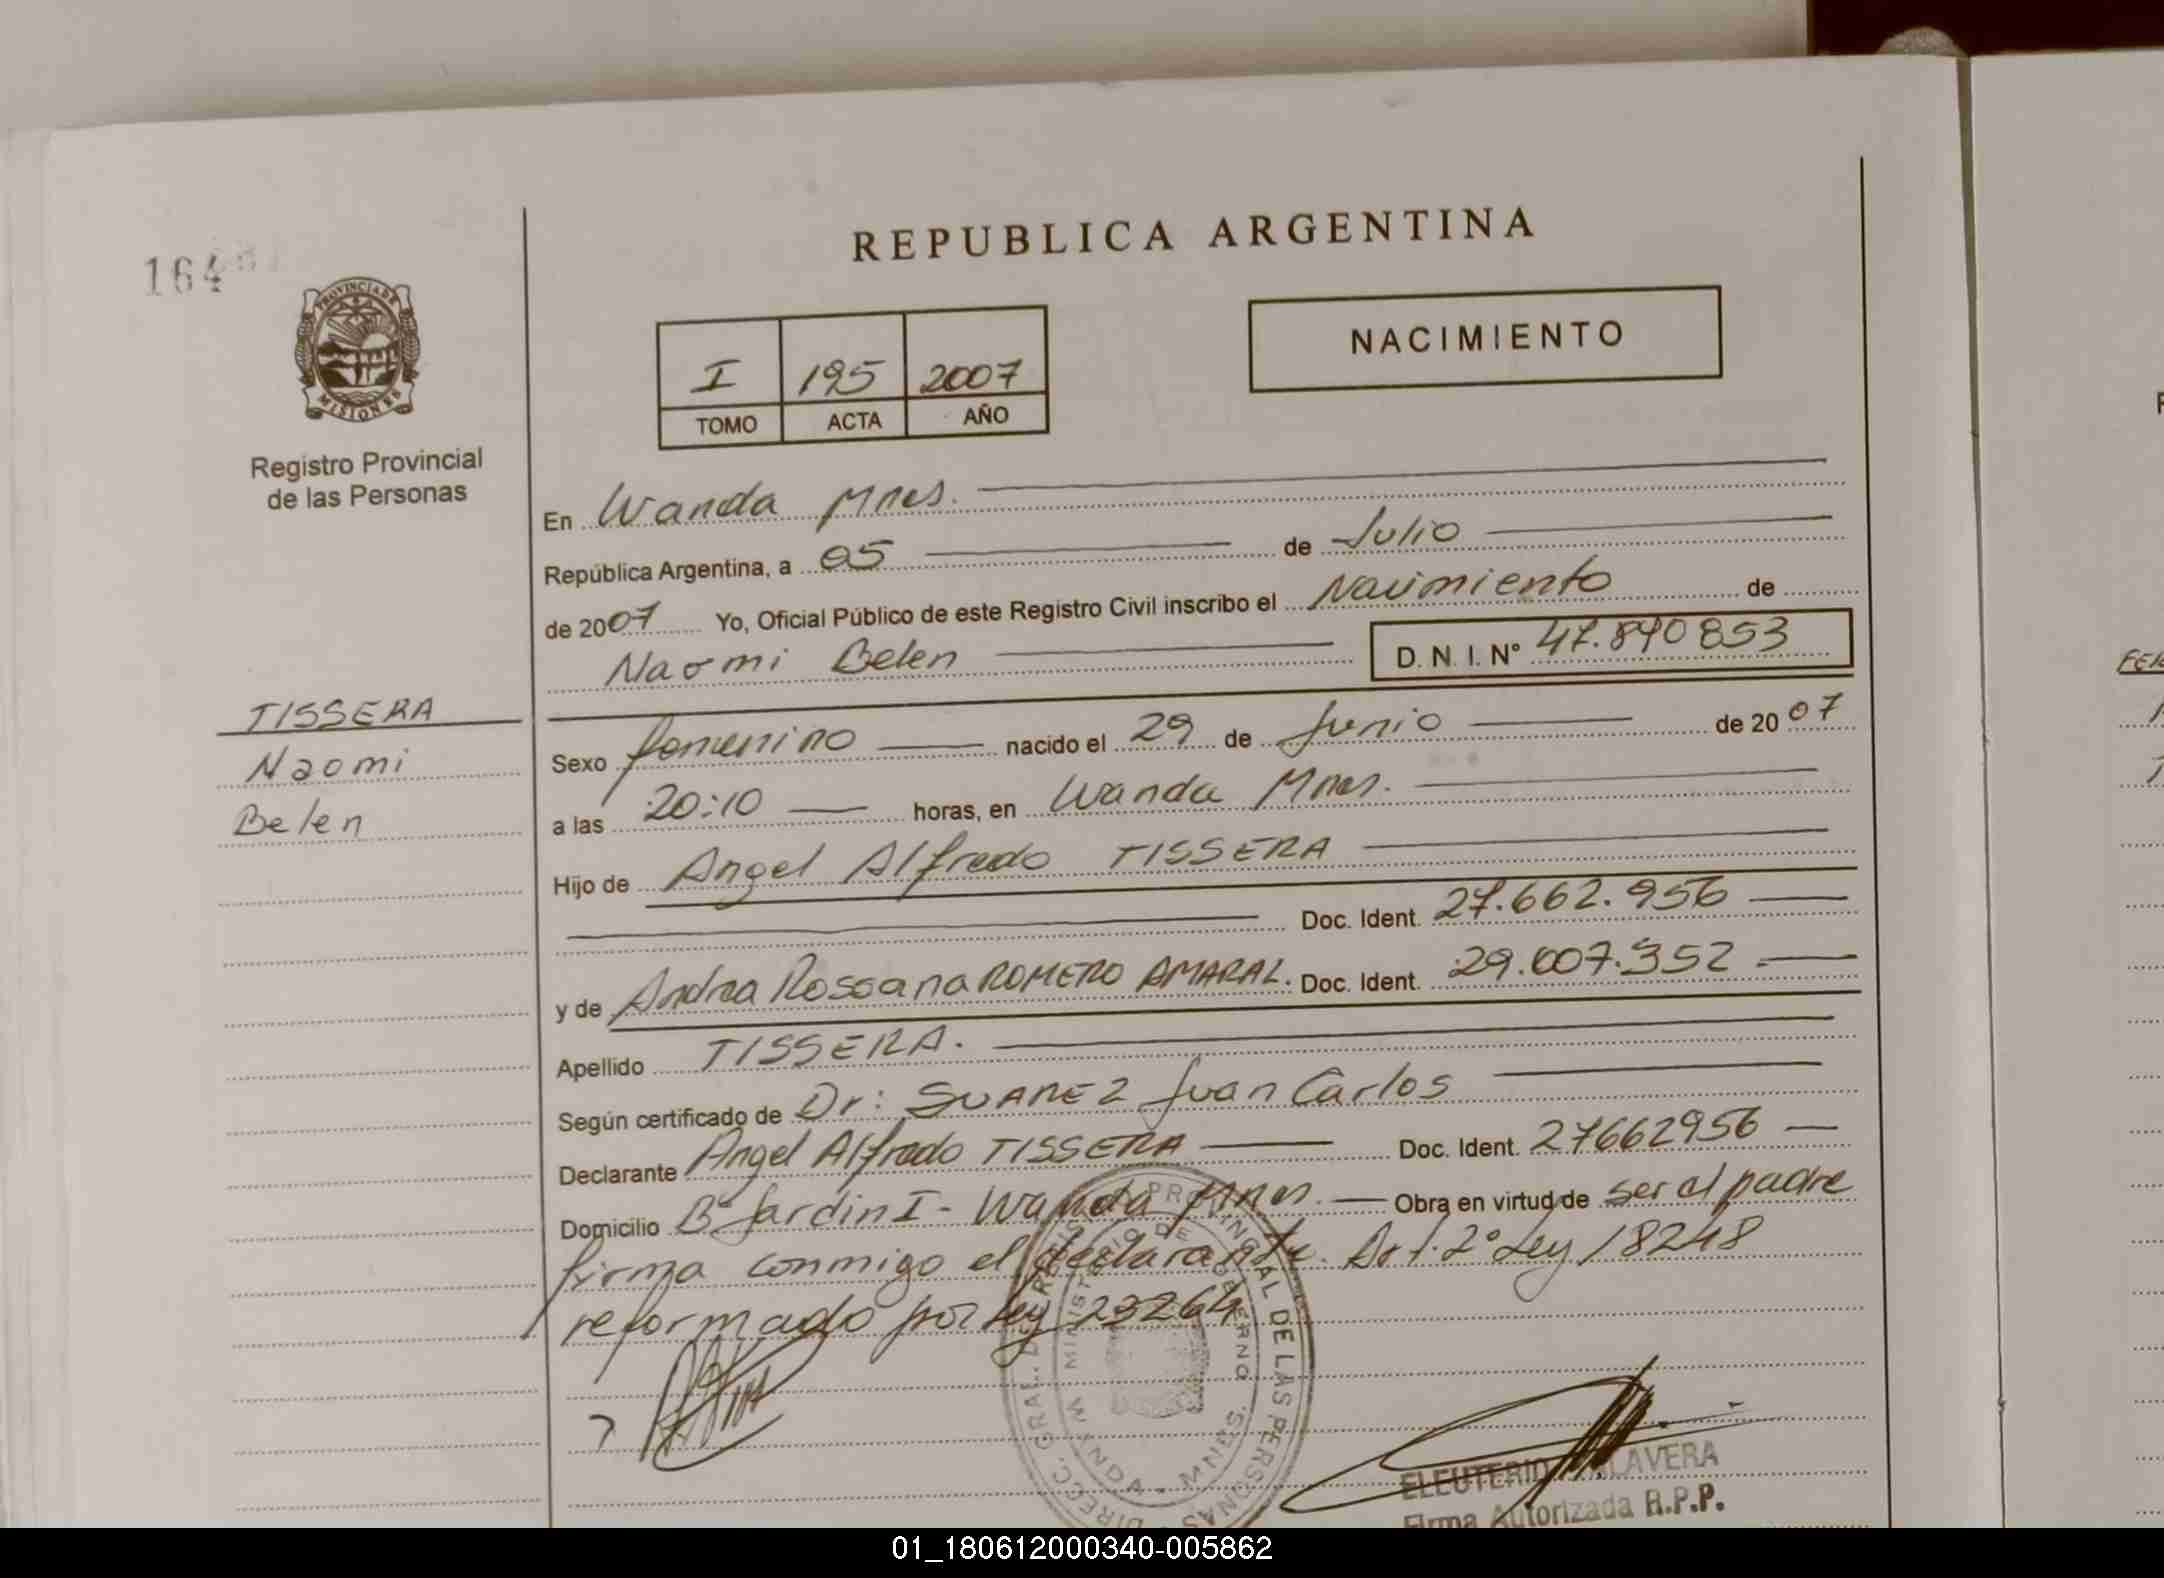 REPUBLICA ARGENTINA
164
PROVINCIA DE
MISIONES
Registro Provincial
de las Personas
I 195 2007
TOMO ACTA AÑO
NACIMIENTO
En Wanda Mnes.
República Argentina, a 05 de Julio
de 2007 Yo, Oficial Público de este Registro Civil inscribo el Nacimiento de
Naomi Belen D. N. I. N° 47.840853
TISSERA
Naomi
Belen
Sexo femenino nacido el 29 de Junio de 2007
a las 20:10 horas, en Wanda Mnes.
Hijo de Angel Alfredo TISSERA
Doc. Ident. 27.662.956
y de Andrea Rossana ROMERO AMARAL. Doc. Ident. 29.007.352
Apellido TISSERA.
Según certificado de Dr: SUAREZ Juan Carlos
Declarante Angel Alfredo TISSERA Doc. Ident. 27662956
Domicilio B° Jardin I - Wanda Mnes. Obra en virtud de ser el padre
firma conmigo el declarante. Art. 2° Ley 18248
reformado por ley 23264
DIRECC. GRAL. DEL REGISTRO PROVINCIAL DE LAS PERSONAS
MINISTERIO DE GOBIERNO
WANDA - MNES.
ELEUTERIO TALAVERA
Firma Autorizada R.P.P.
01_180612000340-005862